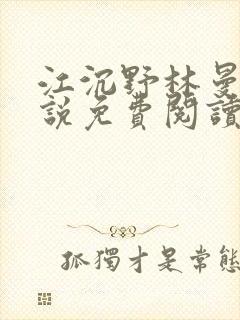 江沉野林曼
說免費閱讀
孤獨才是常態